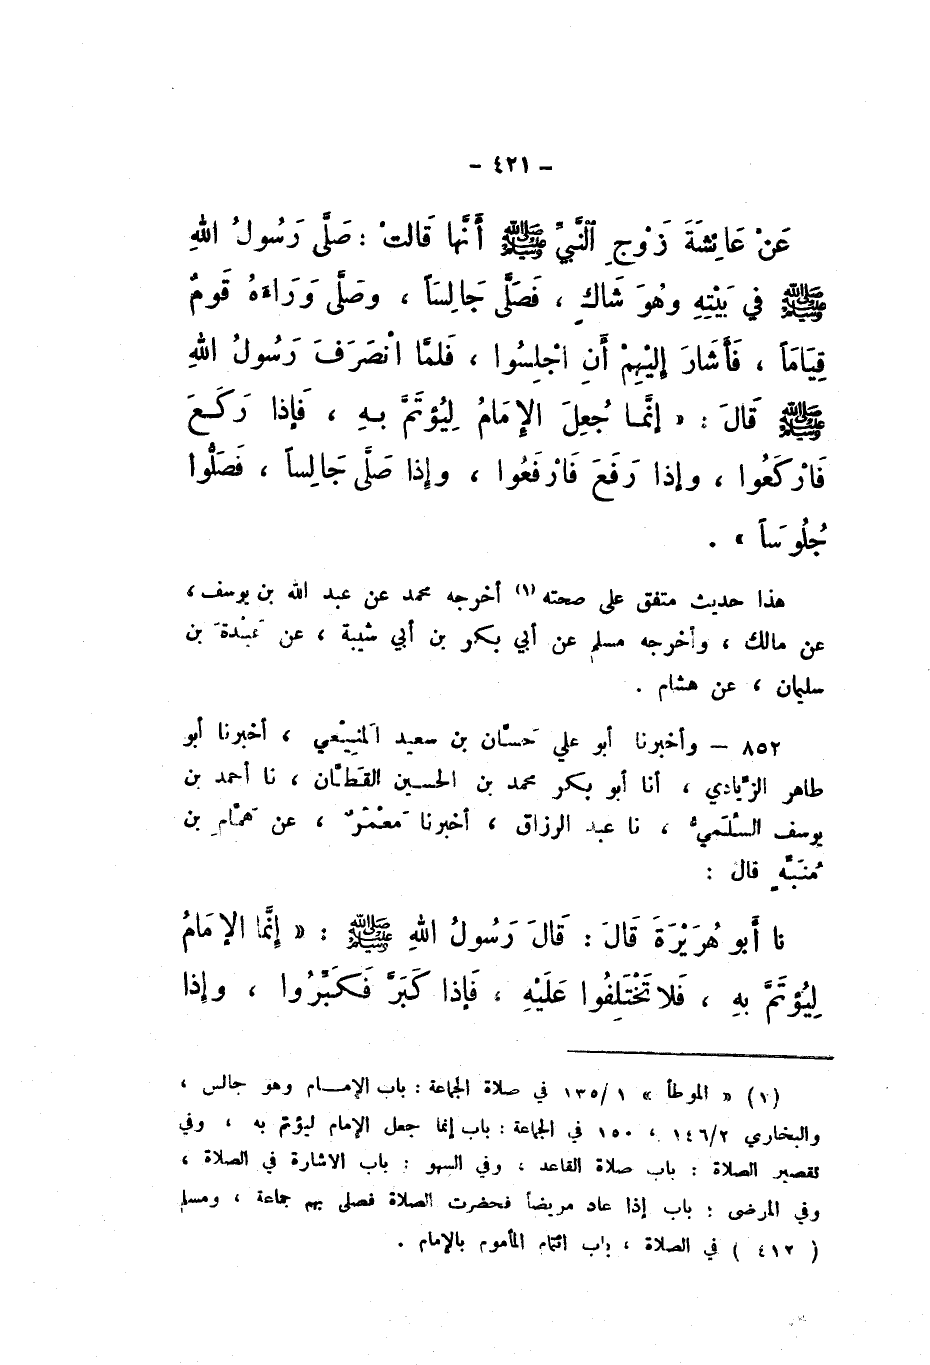 - ٤٢١ -
عَنْ عَائِشَةَ زَوْجِ ٱلنَّبِيِّ ﷺ أَنَّها قَالتْ : صَلَّى رَسُولُ اللهِ
ﷺ في بَيْتِهِ وهُوَ شَاكٍ ، فَصَلَّى جَالِسَاً ، وصَلَّى وَرَاءَهُ قَومٌ
قِيَامَاً ، فَأَشَارَ إليْهِمْ أَنِ اجْلِسُوا ، فَلمَّا انْصَرَفَ رَسُولُ اللهِ
ﷺ قَالَ : « إنَّمـا جُعِلَ الإِمَامُ لِيُؤتَمَّ بـهِ ، فَإذا رَكَـعَ
فَارْكَعُوا ، وإذا رَفَعَ فَارْفَعُوا ، وإِذا صَلَّى جَالِساً ، فَصَلُّوا
جُلُوسَاً » .
هذا حديث متفق على صحته (١) أخرجه محمد عن عبد الله بن يوسف ،
عن مالك ، وأخرجه مسلم عن أبي بكر بن أبي شيبة ، عن عَبْدةَ بن
سليمان ، عن هشام .
٨٥٢ – وأخبرنا أبو علي حَسَّان بن سعيد المَنِيْعي ، أخبرنا أبو
طاهر الزِّيادي ، أنا أبو بكر محمد بن الحسـين القَطـَّان ، نا أحمد بن
يوسف السُّلَميُّ ، نا عبد الرزاق ، أخبرنا مَعْمَرٌ ، عن هَمَّامِ بن
مُنَبِّهٍ قال :
نا أَبو هُرَيْرَةَ قَالَ : قَالَ رَسُولُ اللهِ ﷺ : « إِنَّمَا الإِمَامُ
لِيُؤتَمَّ بهِ ، فَلا تَخْتَلِفُوا عَلَيْهِ ، فَإذا كَبَرَّ فَـكَبِّرُوا ، وإِذا
(١) « الموطأ » ١٣٥/١ في صلاة الجماعة : باب الإمـــام وهو جالس ،
والبخاري ١٤٦/٢ ، ١٥٠ في الجماعة : باب إنما جعل الإمام ليؤتم به ، وفي
تقصير الصلاة : باب صلاة القاعد ، وفي السهو : باب الاشارة في الصلاة ،
وفي المرضى : باب إذا عاد مريضاً فحضرت الصلاة فصلى بهم جماعة ، ومسلم
( ٤١٢ ) في الصلاة ، باب ائتمام المأموم بالإمام .